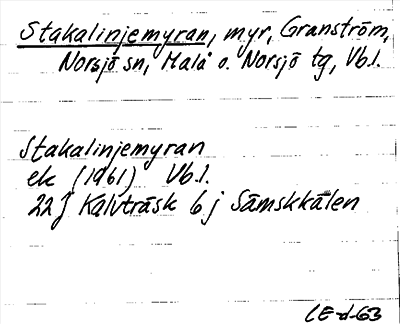 Stakalinjemyran, myr, Granström,
Norsjö sn, Malå o. Norsjö tg, Vb.l.
Stakalinjemyran
ek (1961) Vb.l.
22J Kalvträsk 6 j Sämskkälen
CE-d-63